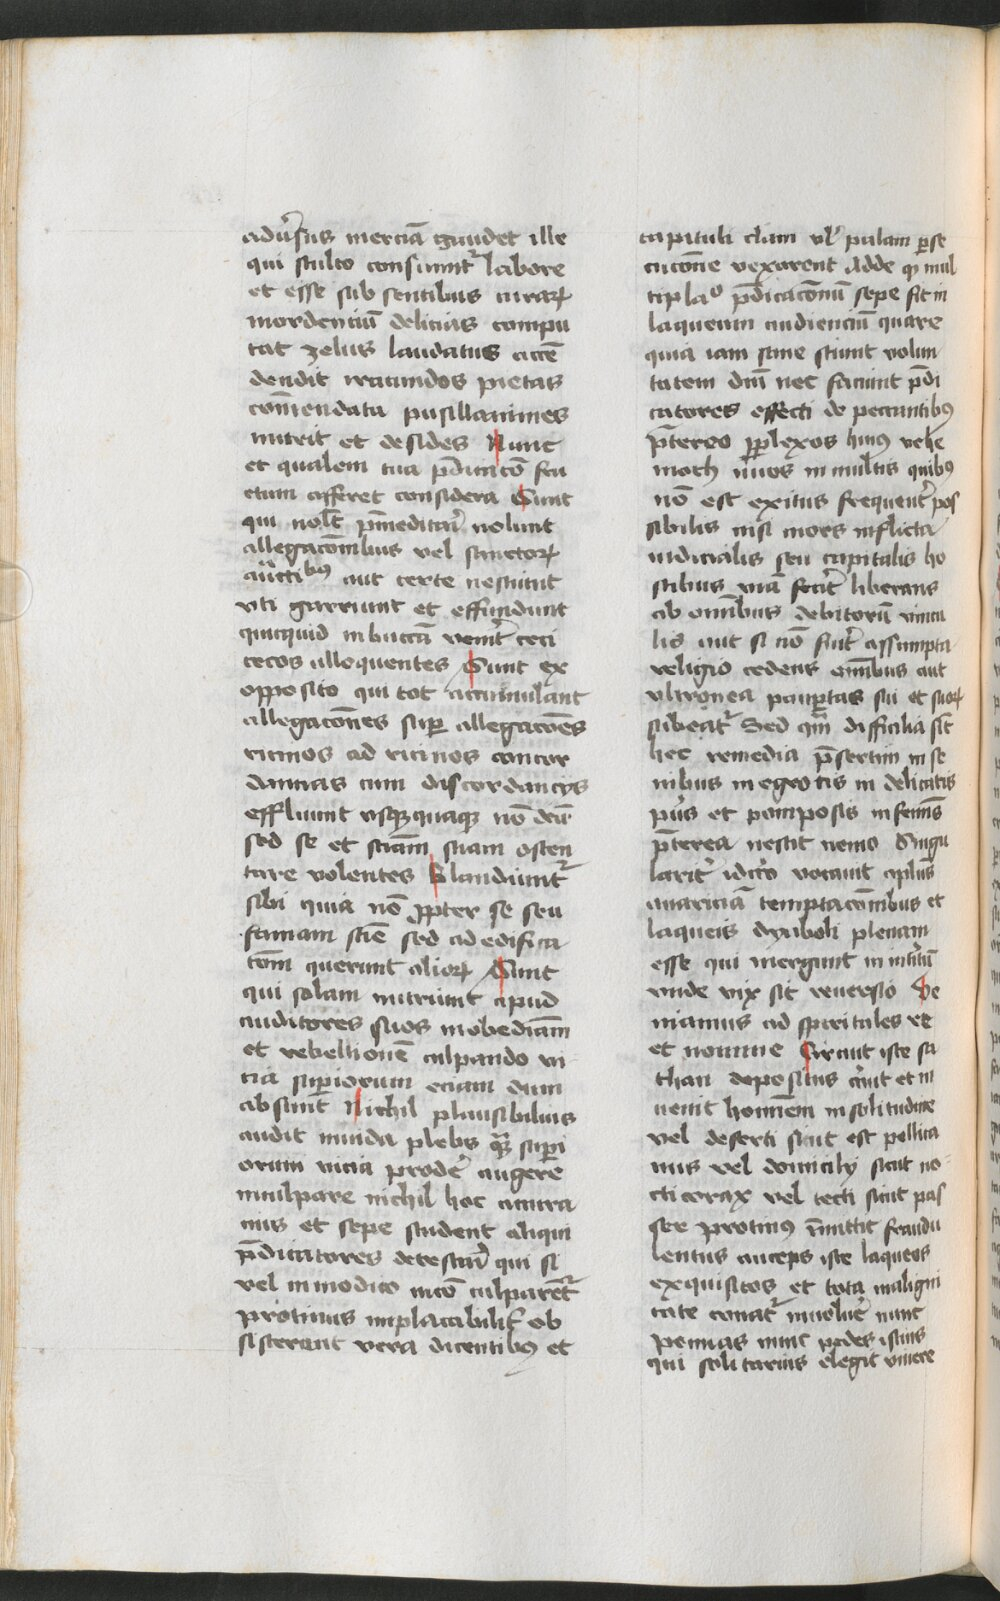 adu̾sus inerciā gaudet ille
qui stulto consumit᷑ labore
et esse sub sentibus curaꝝ
mordenciū delicias compu
tat zelus laudatus accē
dendit iracundos pietas
cōmendata pusillanimes
nutrit et desides Nunc
et qualem tua p̄dicacō fru
ctum afferet considera Sunt
qui nol̄t p̄meditari nolunt
allegacōnibus vel sanctoꝝ
aūctibus aut certe nesciunt
vti garriunt et effundunt
quicquid in buccā venit̾ ceci
cecos alloquentes Sunt ex
opposito qui tot accumulant
allegacōnes suꝑ allegacōes
ricinos ad ricinos concor
dancias cum discordancijs
effluunt vsqꝫquaqꝫ nō deū
sed se et sciam̄ suam osten
tare volentes Blandiunt᷑
sibi quia nō ꝓpter se seu
famam sue̅ sed ad edifica
cōm querunt alioꝝ Sunt
qui solam nutriunt apud
auditores suos inobediām
et rebellionē culpando vi
cia suꝑiorum eciam dum
absunt Nichil plausibilius
audit inuida plebs qᷓꝫ suꝑi
orum vicia prode̾ augere
inculpare nichil hoc amira
mus et sepe student aliqui
p̄dicatores detestari qui si
vel in modico uicō culparēt᷑
protinus implacabilit̾ ob
sisterent vera dicentibꝰ et
capituli clam vl̾ palam ꝑse
cucōne vexarent Adde qꝫ mul
tiplaᵒ p̄dicacōnū sepe fit in
laqueum audienciū quare
quia iam sane sciunt volun
tatem dn̄i nec faciunt p̄di
catores effecti de peccantibꝰ
p̄tereo ꝑplexos huiꝰ vehe
moth neruos in multis quibꝰ
nō est exitus frequent̾ pos
sibilis nisi mors inflicta
iudicialis seu capitalis ho
stibus viā fecit̾ liberans
ab om̄ibus debitorū vincu
lis aut si nō fuit̾ assumpta
religio cedens om̄ibus aut
vltronea pauꝑtas sui et suoꝝ
subeat᷑ Sed qm̄ difficilia sūt
hec remedia p̄sertim in se
nibus in egrotis in delicatis
pu̾is et pomposis in femīs
p̄terea nescit nemo Singu
larit̾ idcirco vocauit apl̄us
auariciā temptacōnibus et
laqueis dyaboli plenam
esse qui mergunt in intitū
vnde vix sit reuersio Ve
niamus ad spirituales re
et nomine Circuit iste sa
than depositus cr̄uit et in
uenit hominem in solitudine
vel deserti sicut est pellica
nus vel domicilij sicut no
cticorax vel tecti sicut pas
ser protinꝰ īmittit fraudu
lentus auceps iste laqueos
exquisitos et tota maligni
tate conat᷑ inuolue̾ nunc
pennas nunc pedes istius
qui solitarius elegit viuere